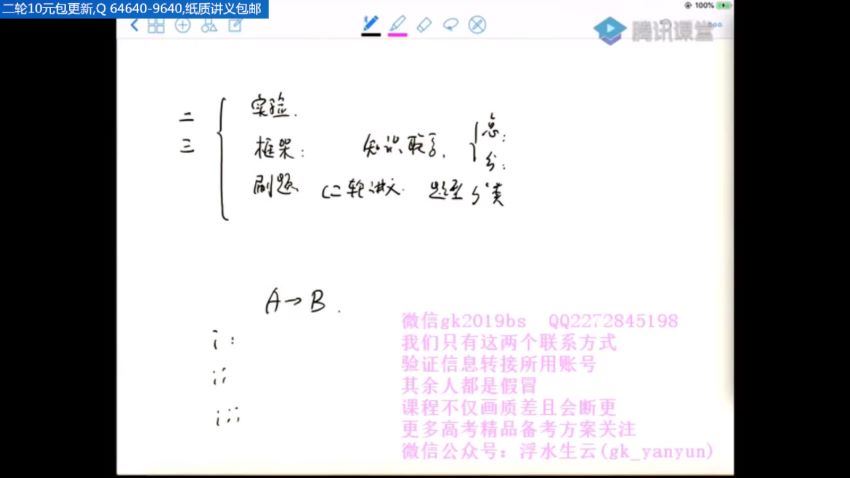 二轮10元包更新,Q 64640-9640,纸质讲义包邮
100%
腾讯课堂
二
三
实验.
框架: 知识联系. 总:
分:
刷题 (二轮讲义. 题型分类
A→B.
i:
ii
iii
微信gk2019bs QQ2272845198
我们只有这两个联系方式
验证信息转接所用账号
其余人都是假冒
课程不仅画质差且会断更
更多高考精品备考方案关注
微信公众号：浮水生云(gk_yanyun)